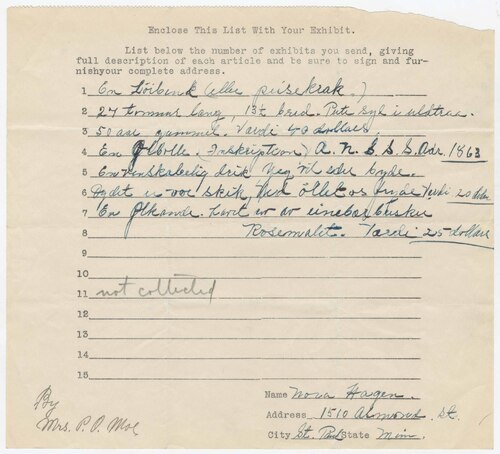 Enclose This List With Your Exhibit.
List below the number of exhibits you send, giving
full description of each article and be sure to sign and fur-
nishyour complete address.
1 En Löibenk (eller peisekrak.)
2 27 tommer lang, 13t bred.
3 50 aar gammel. Værdi 40 dollars.
4 En Ølbolle. Inskription) A. N. S. S. S. Aar. 1863
5 En venskabelig drik Jeg vil eder byde.
6 vor skik, øllet os Værdi 20 dollar
7 En Ølkande. av einebær busker
8 Rosemalet. Værdi 25 dollars
9
10
11 not collected
12
13
14
15
Name Nora Hagen.
Address 1510 Almond St.
City St. Paul State Minn.
By
Mrs. P. O. Moe